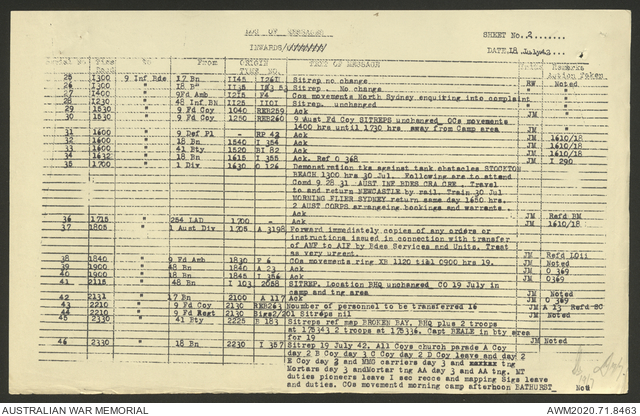 LOG OF MESSAGES
SHEET No. 2.......
INWARDS/
DATE. 18 July 42
Serial No. Time Recd to From ORIGIN TEXT OF MESSAGE Remarks
TIME NO. Action Taken
25 1300 9 Inf Bde 17 Bn 1145 Sitrep no change RW Noted
26 1300 " 18 Bn 1135 Sitrep No change "
27 1400 " 9Fd Amb 1215 F4 Cos movements North Sydney enquiring into complaint "
28 1230 " 48 Inf BN 1125 1101 Sitrep unchanged "
29 1530 " 9 Fd Coy 1040 REB259 Ack JM "
30 1530 " 9 Fd Coy 1250 REB260 9 Aust Fd Coy SITREPS unchanged OCs movements JM "
1400 hrs until 1730 hrs away from Camp area
31 1600 " 9 Def Pl - RP 42 Ack JM 1610/18
32 1600 " 18 Bn 1540 I 354 Ack JM 1610/18
33 1600 " 41 Bty 1520 BI 82 Ack JM 1610/18
34 1632 " 18 Bn 1615 I 355 Ack. Ref O 368 JM I 290
35 1700 " 1 Div 1630 O 126 Demonstration tks against tank obstacles STOCKTON
BEACH 1300 hrs 30 Jul. Following are to attend
Comd 9 28 31 AUST INF BDES CRA CRE. Travel
to and return NEWCASTLE by rail. Train 30 Jul
MORNING FLIER SYDNEY return same day 1650 hrs.
2 AUST CORPS arrangeing bookings and warrants.
36 1715 " 254 LAD 1700 - Ack JM Refd BM
37 1805 " 1 Aust Div 1705 A 3198 Forward immediately copies of any orders or JM 1610/18
instructions issued in connection with transfer
of AMF to AIF by Bdes Services and Units. Treat
as very urgent.
38 1840 " 9 Fd Amb 1830 F 6 COs movements ring XB 1120 tial 0900 hrs 19. JM Refd
39 1900 " 48 Bn 1840 A 23 Ack JM Noted
40 1900 " 18 Bn 1845 I 356 Ack JM O 369
41 2115 " 48 Bn I 103 2058 SITREP. Location BHQ unchanged CO 19 July in JM O 369
camp and tng area Noted
42 2131 " 17 Bn 2100 A 117 Ack JM O 369
43 2210 " 9 Fd Coy 2130 REB263 Number of personnel to be transfered 16 JM A 13 Refd SC
44 2210 " 9 Fd Regt 2130 Sigs2/201 Sitreps nil JM Noted
45 2330 " 41 Bty 2225 B 183 Sitreps ref map BROKEN BAY. BHQ plus 2 troops
at 175343 2 troops at 178336. Capt BEALE in bty area
for 19 JM Noted
46 2330 " 18 Bn 2230 I 357 Sitrep 19 July 42. All Coys church parade A Coy
day 2 B Coy day 3 C Coy day 2 D Coy leave and day 2
E Coy day 2 and MMG carriers day 3 and tng
Mortars day 3 andMortar tng AA day 3 and AA tng. MT
duties pioneers leave I sec recce and mapping Sigs leave
and duties. COs movementd morning camp afternoon BATHURST
AUSTRALIAN WAR MEMORIAL
AWM2020.71.8463